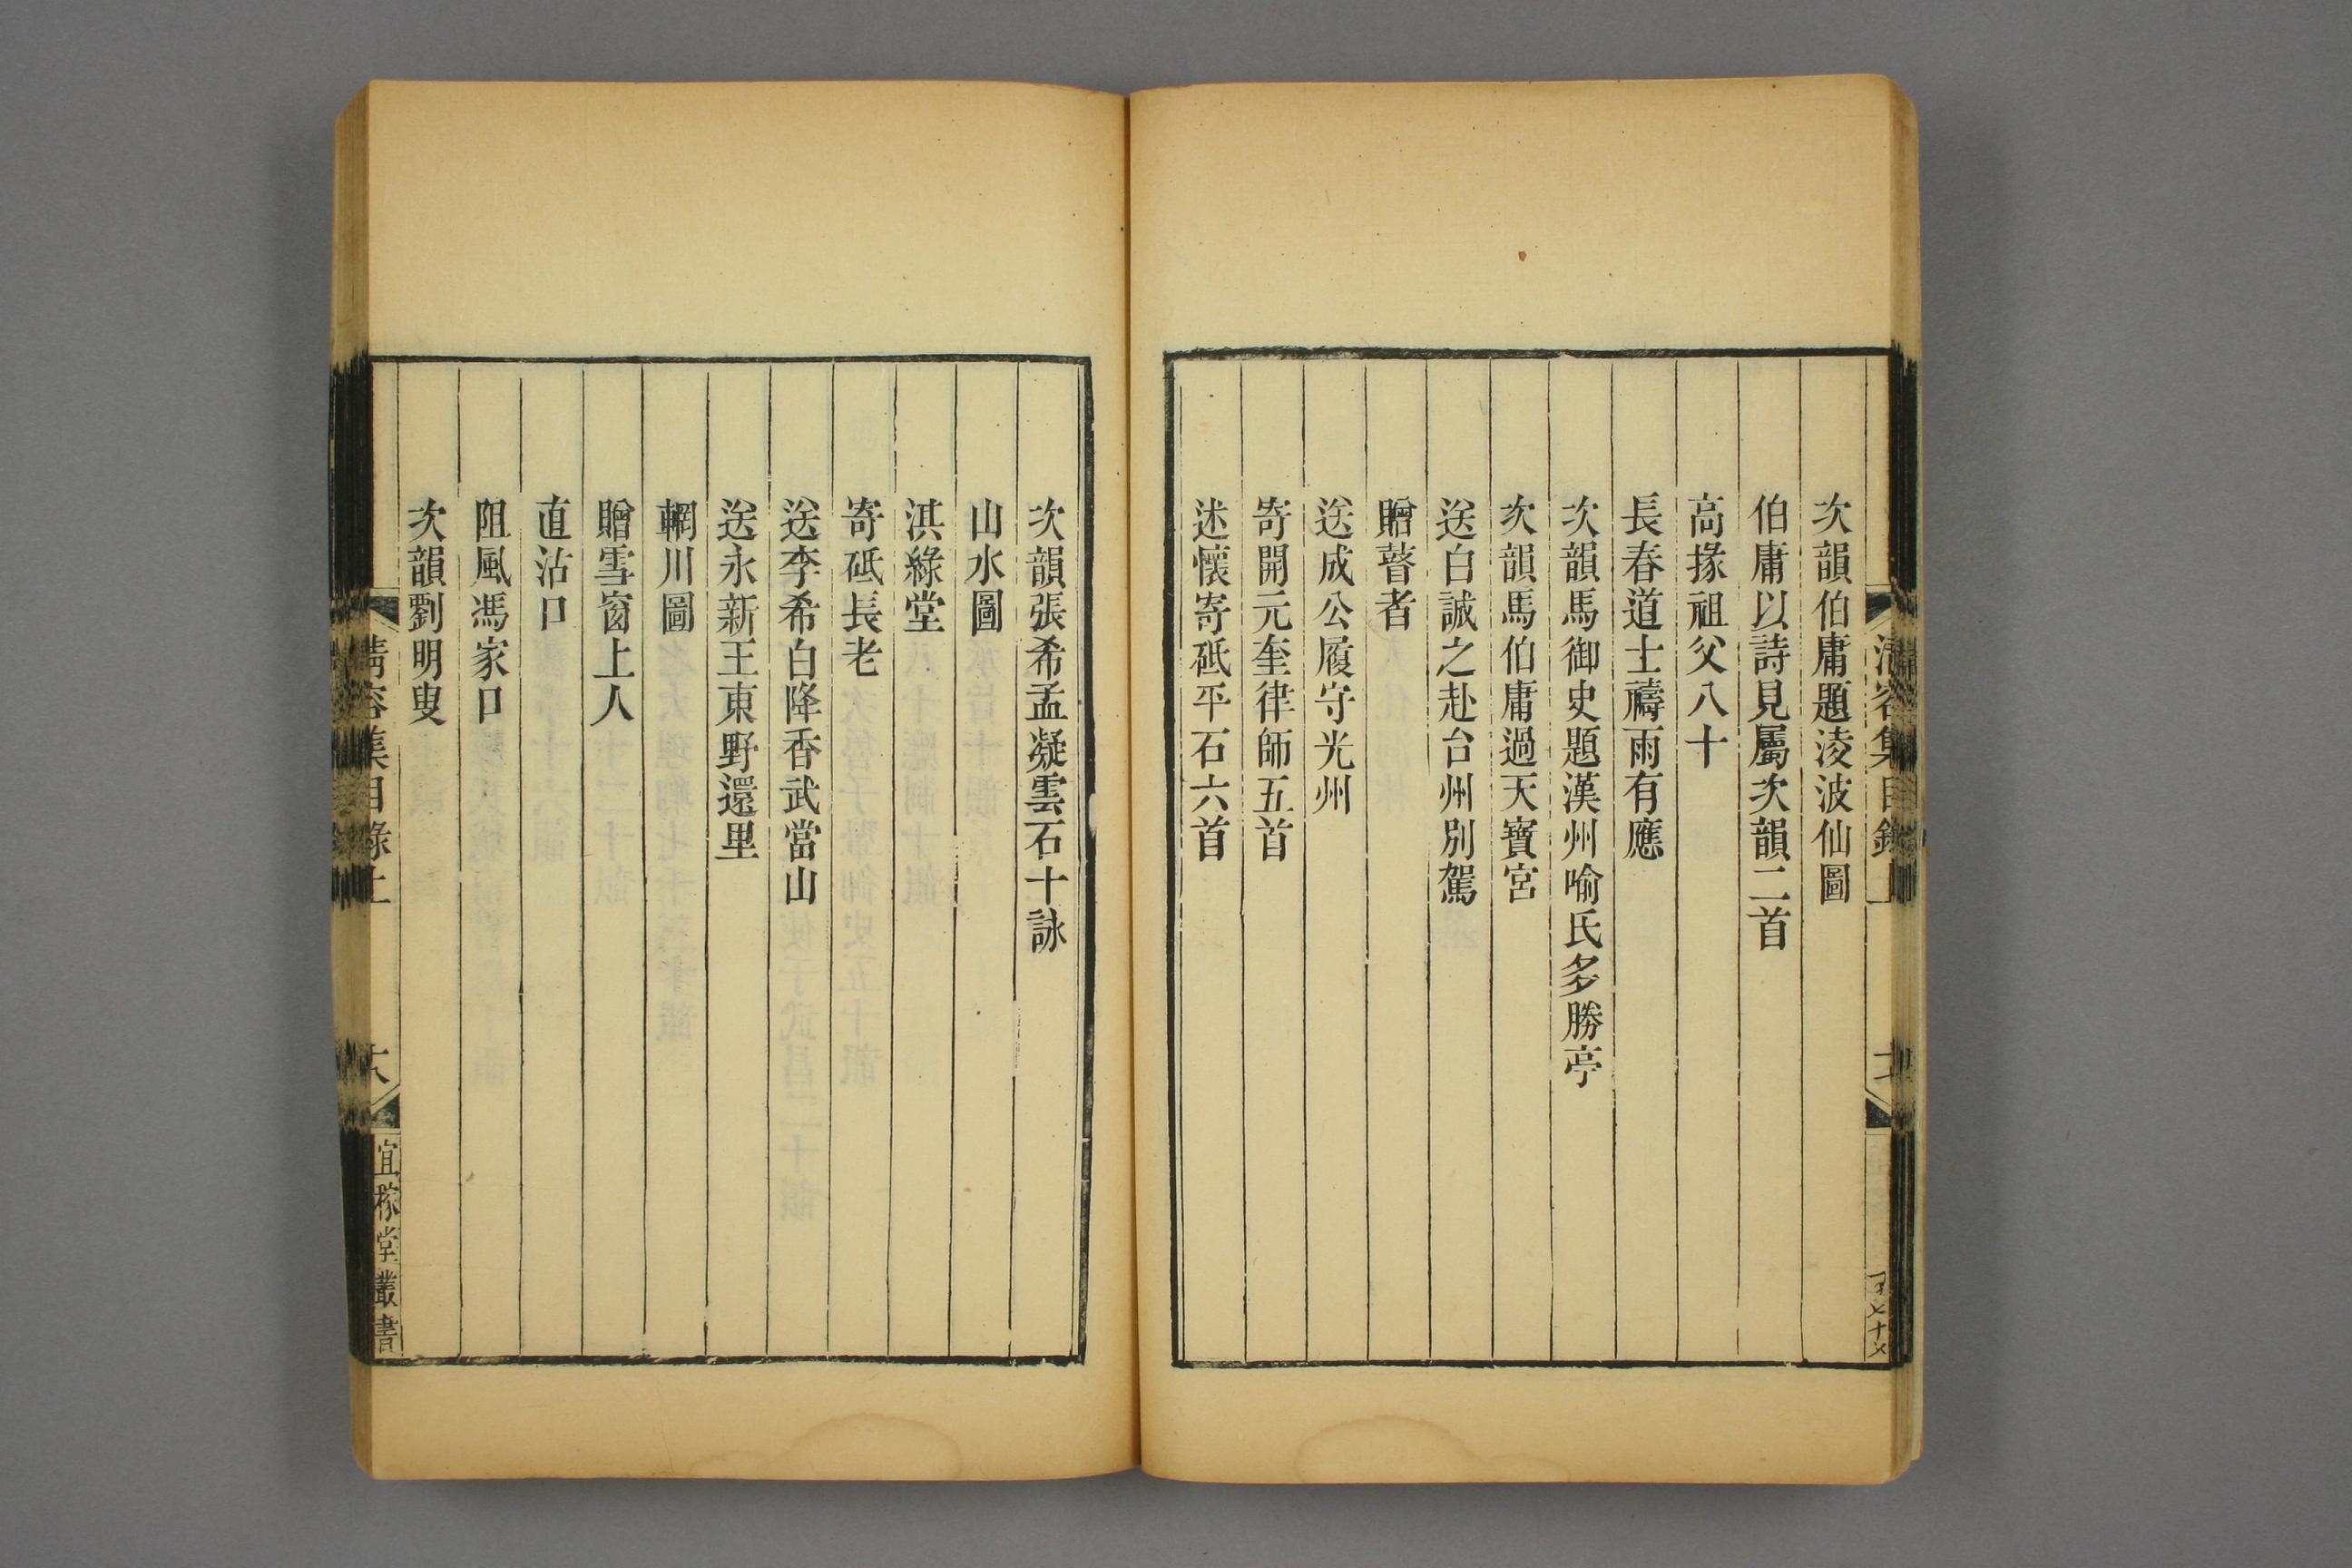 次韻伯庸題淩波仙圖
伯庸以詩見屬次韻二首
高掾祖父八十
長春道士禱雨有應
次韻馬御史題漢州喻氏多勝亭
次韻馬伯庸過天寶宮
送白誠之赴台州別駕
贈瞽者
送成公履守光州
寄開元奎律師五首
述懷寄砥平石六首
次韻張希孟凝雲石十詠
山水圖
淇綠堂
寄砥長老
送李希白降香武當山
送永新王東野還里
輞川圖
贈雪窗上人
直沽口
阻風馮家口
次韻劉明叟
清容集目錄上
宜稼堂叢書